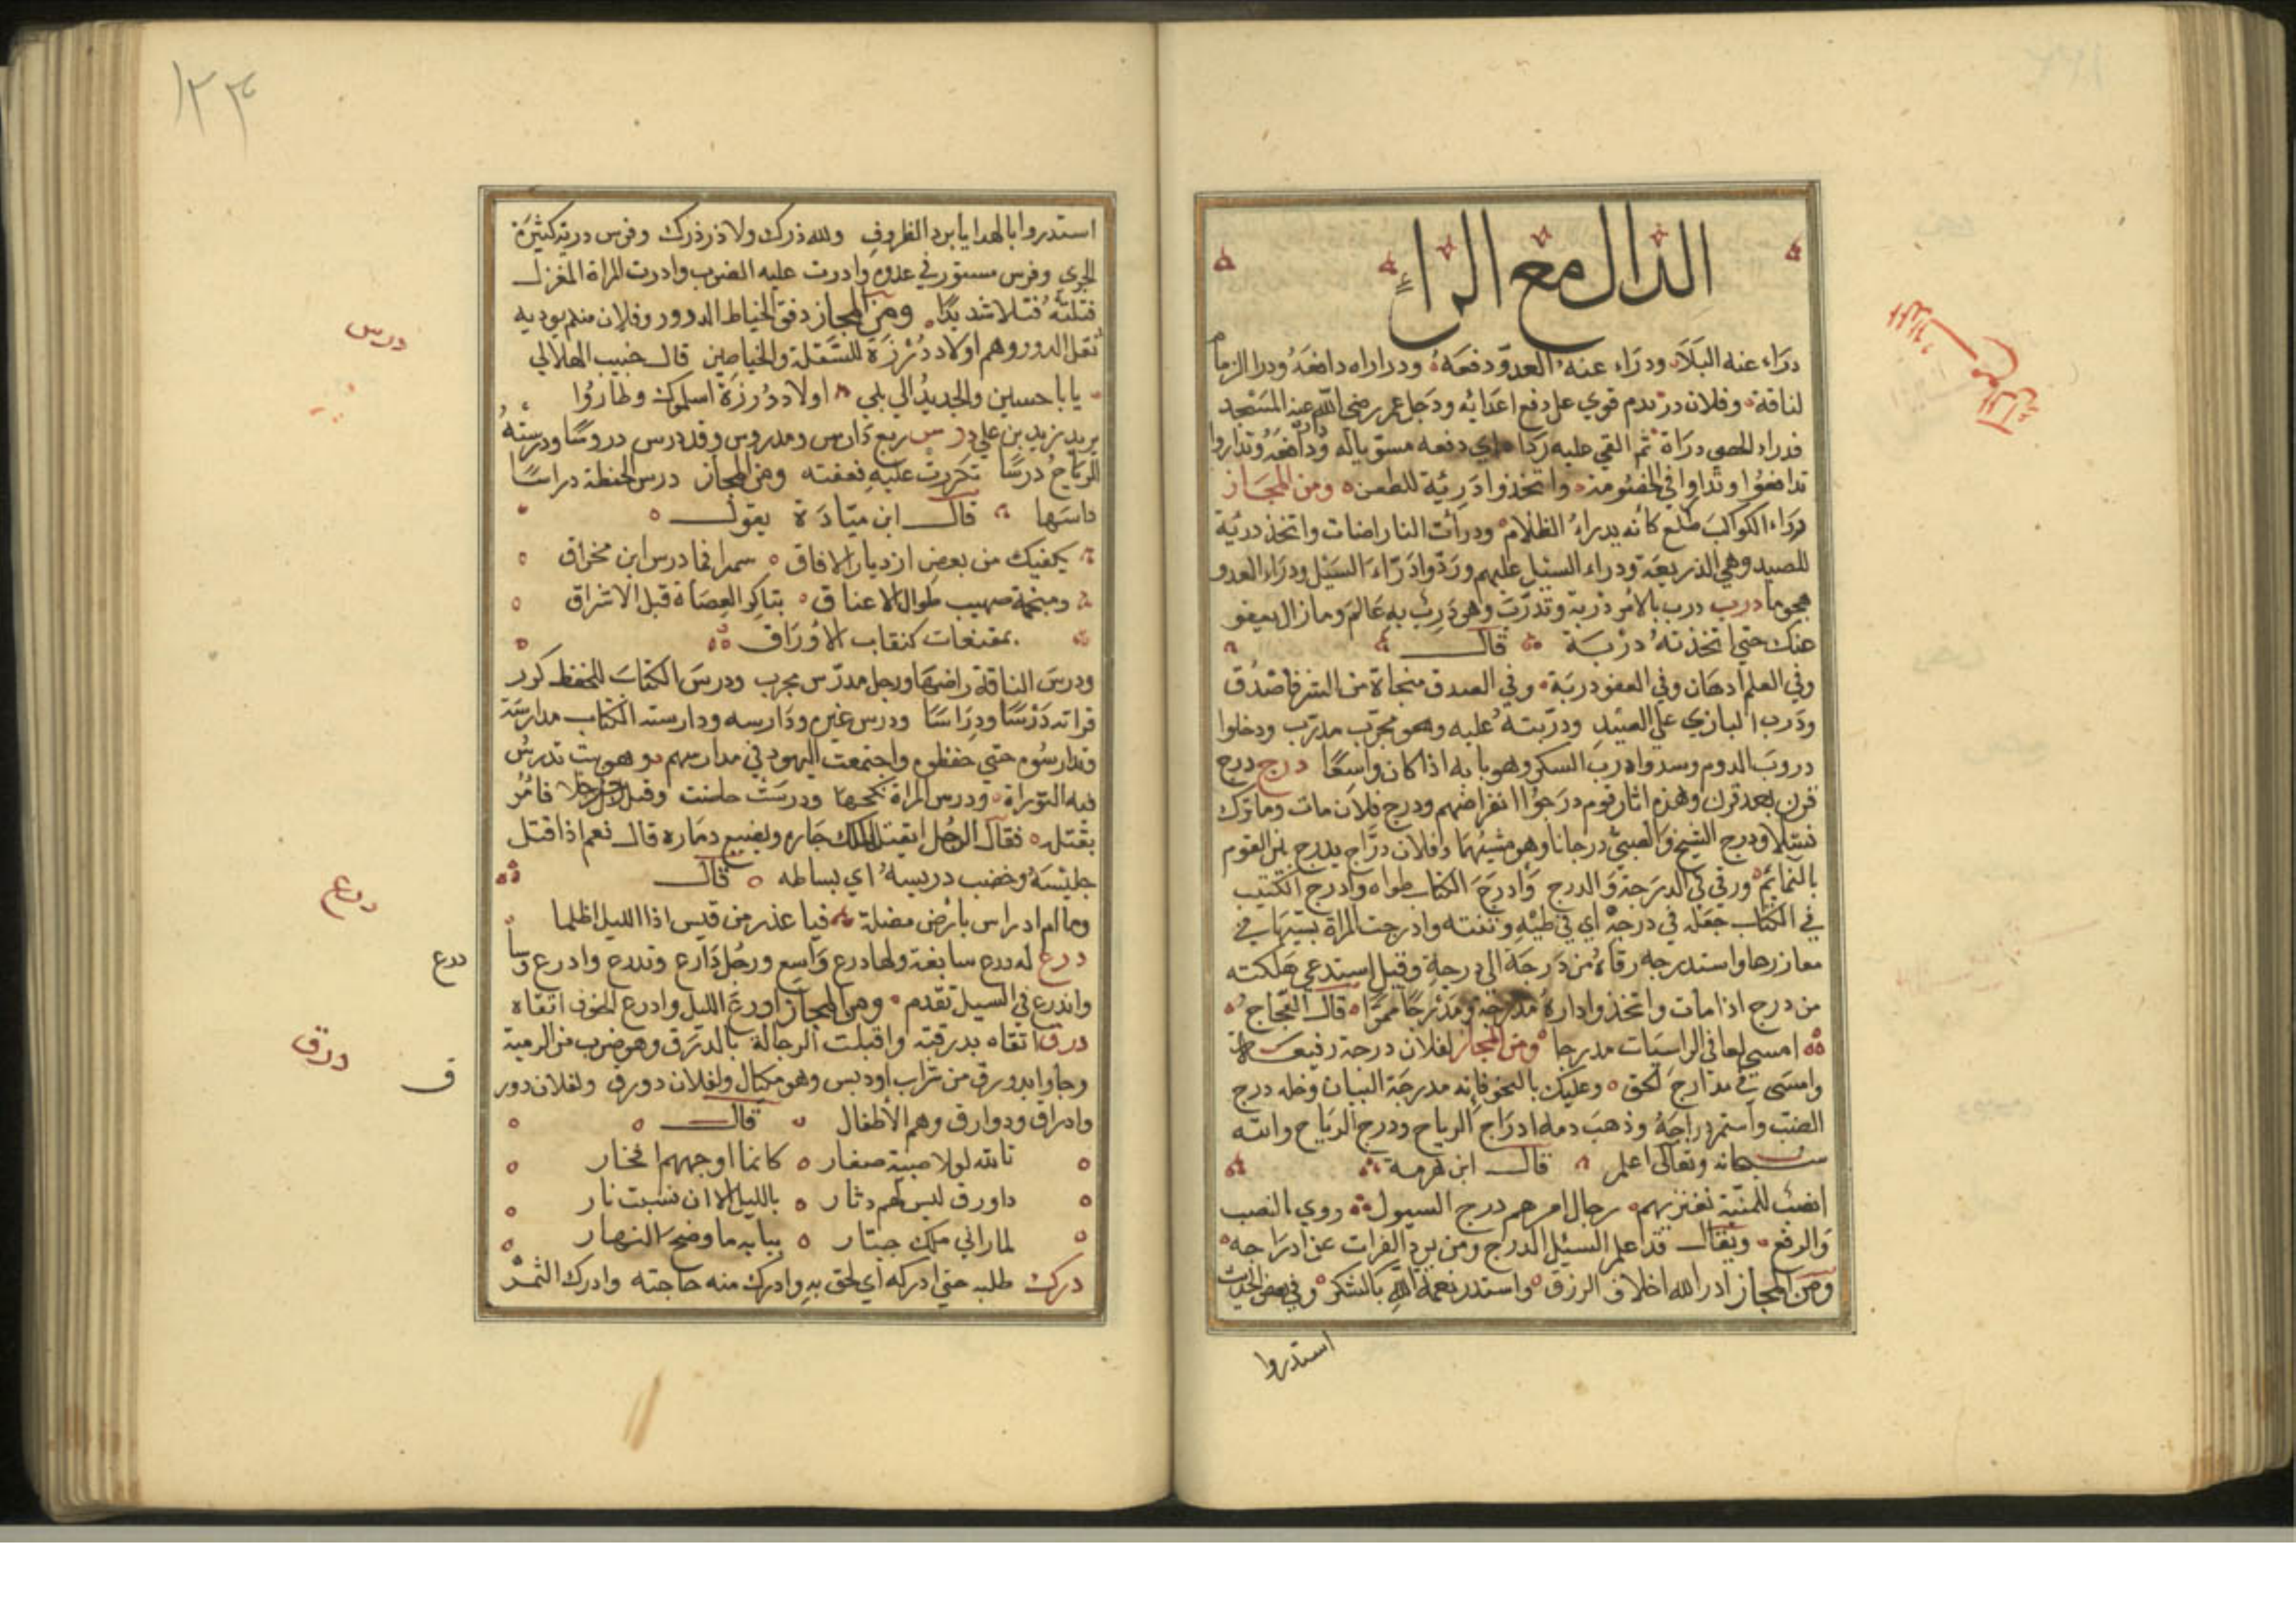 الدال مع الراء
درَاء عنه البَلَآء ودرَاء عنه العدوّ دفعَهُ ودراراه دافعَهُ ودرا الزمام
لناقة وفلان درٓ تدم قوي على دفع اعدَائه ودَجل عمر رضي الله عنه المسَتجد
فدراء الحصى درَاة ثم القي عليه رَدَا اي دفعه مستويا له وَدافعَهُ وتدَاروا
تدافعُوا وتدَاوا في الخصُومة واتخذوا دَرِيّة للطعن ومن المجَاز
درَاء الكواكب طلع كأنه يدراءُ الظلام ودرأت النار اضات واتخذ دريّة
للصيد وهي الذريعة ودراء السَيل عليهم ورَدّوا دَرَاءَ السَيْل ودرَاء العدو
هجوما درب درب بالامر دَربة وتدرّبَ وهو دَرِبٌ به عَالم وما زال يعفو
عنك حتى اتخذتهُ دربَة قال
وفي العلم ادهَان وفي العفو دربَة وفي الصدق منجاة من الشر فاصدُق
ودَرب البازي على الصيد ودرّبتهُ عليه وهو مجرّب مدرّب ودخلوا
دروبَ الروم وسدوا دربَ السكر وهو بابه اذا كان واسعًا درج درج
قرن بعد قرن وهذه اثار قوم درَجوُا انقراضهم ودرج فلان مات وما ترك
نسلا ودرج الشيخ والصبيُ درجانا وهو مشيُهمَا وفلان درَّاج يدرج بين القوم
بالنمائم ورقي في الدرَجة وَالدرج وَادرَجَ الكتاب طواه وادرج الكتيب
في الكتاب جعَله في درجه اي في طيّه وثنته وادرجت المراة بنتهَا في
معازرها واستدرجه رقاهُ من دَرجَة الى درجة وقيل استدعي هَلكته
من درج اذا مات واتخذوا دارهُ مدرجة ومَدْرجًا ممرًّا قال العجاج
امسى لعافي الراسيَات مدرجا ومن المجاز لفلان درجة رفيعَة
وامسَى في مدَارج الحق وعليك بالنحو فانه مدرجَة البيَان وخله درج
الضب واستمر دراجَهُ وذهبَ دمه ادرَاج الرياح ودرج الرياح والله
سبحانه وتعالى اعلم قال ابن هرمة
انصبٌ للمنيّة تعتريهم رجال امر هم درج السيول روي بالنصب
وَالرفع ويقال قد علم السيْل الدرج ومن يرد الفرات عن ادرَاجه
ومن المجاز ادر الله اخلاف الرزق واستدر نعمة الله بالشكر وفي بعض الحديث
استدروا
١٢٣
استدروا بالهدايا برد الظروف ولله درك ولا در درك وفرس درير كثيرَة
الجري وفرس مستدر في عدوه وادرت عليه الضرب وادرت المراة المغزل
فتلتهُ فتلا شديدًا ومن المجاز دقق الخياط الدرور وفلان منهم يوديه
ثقل الدرور وهم اولاد دُرْزَة للسَفلة والخياطين قال حبيب الهلالي
يا با حسين والجديدُ الي بلي اولاد دُرزَة اسلموك وطاروُا
يريد زيد بن علي درس ربع دَارس ومدروس وقد درس دروسًا ودرستهُ
الرياحُ درسًا تكررت عليه فعفته ومن المجاز درس الحنطة دراسًا
داسَها قال ابن ميّادَة يقول
يكفيك من بعض ازديار الافاق سمرا مما درس ابن مخراق
وهجمة صهيب طوال الاعناق تباكر العِضَاة قبل الاشراق
بمقنعات كنقاب الاورَاق
ودرسَ الناقة راضهَا ورجل مدرّس مجرب ودرسَ الكتاب للحفظ كرر
قراته دَرْسًا ودِرَاسًا ودرس غيره ودَارسه ودارسته الكتاب مدارسَة
وتدارسُوه حتى حفظوه واجتمعت اليهود في مدارسهم وهو بيت تدرسُ
فيه التورَاة ودرس المراة نكحها ودرسَتْ حاضت وقيل لرجل فامُر
بقتله فقال الرجل ايقتل الملك جاره ويضيع دمَاره قال نعم اذا قتل
جليسَهُ وخضب دريسهُ اي بساطه قال
وما ام ادراس بارض مضلة فيا عذر من قيس اذا الليل اظلما
درع له درع سابغة ولها درع وَاسع ورجُل دَارع وتدرع وادرع وسا
واندرع في السير تقدم ومن المجاز ادرع الليل وادرع الخوف اتقاه
درق اتقاه بدرقته واقبلت الرجالة بالدرَق وهو ضرب من الرمية
وجاوا بدورق من شراب او دبس وهو مكيال ولفلان دورق ولفلان دور
وادراق ودوارق وهم الاطفال قال
تالله لولا صبية صغار كانما اوجههم افخار
داورق ليس لهم دثار بالليل الا ان نسبت نار
لما راني ملك جبّار ببابه ما وضح النهار
درك طلبه حتى ادركه اي لحق به وادرك منه حاجته وادرك الثمر
درس
درع
درع
درق
ق